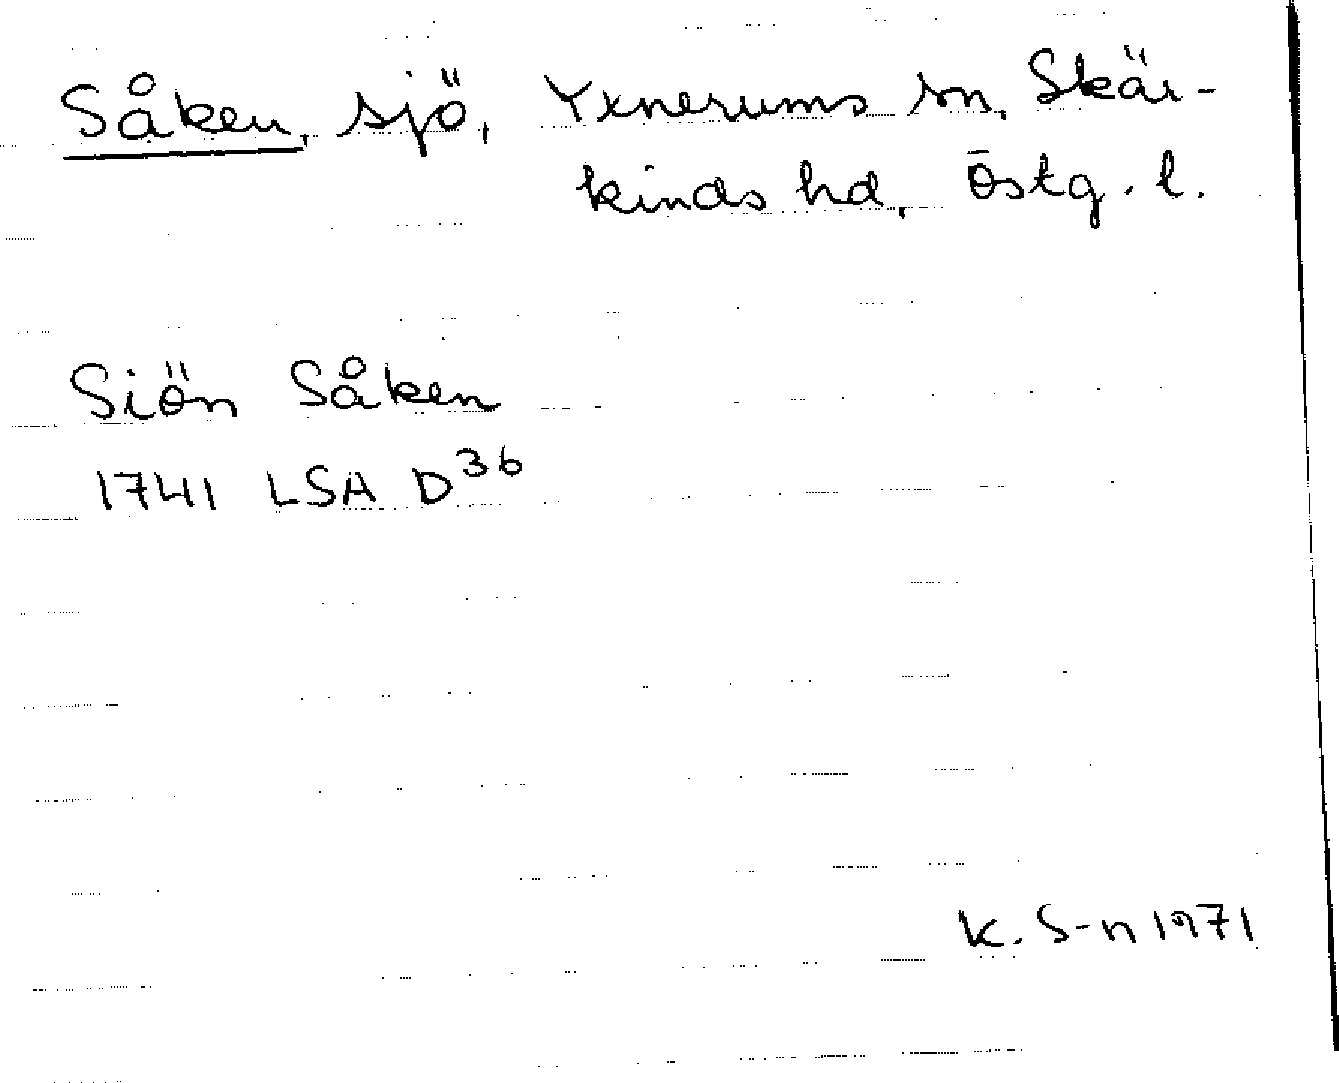 Såken, sjö, Yxnerums sn, Skär-
kinds hd, Östg. l.
Siön Såken
1741 LSA D36
K. S-n 1971